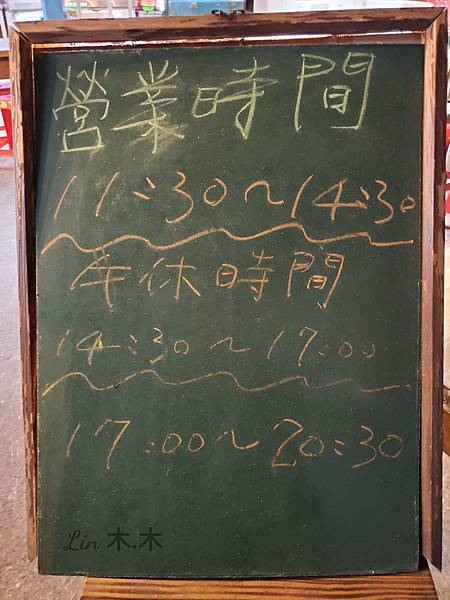 營業時間
11:30～14:30
午休時間
14:30～17:00
17:00～20:30
Lin 木.木